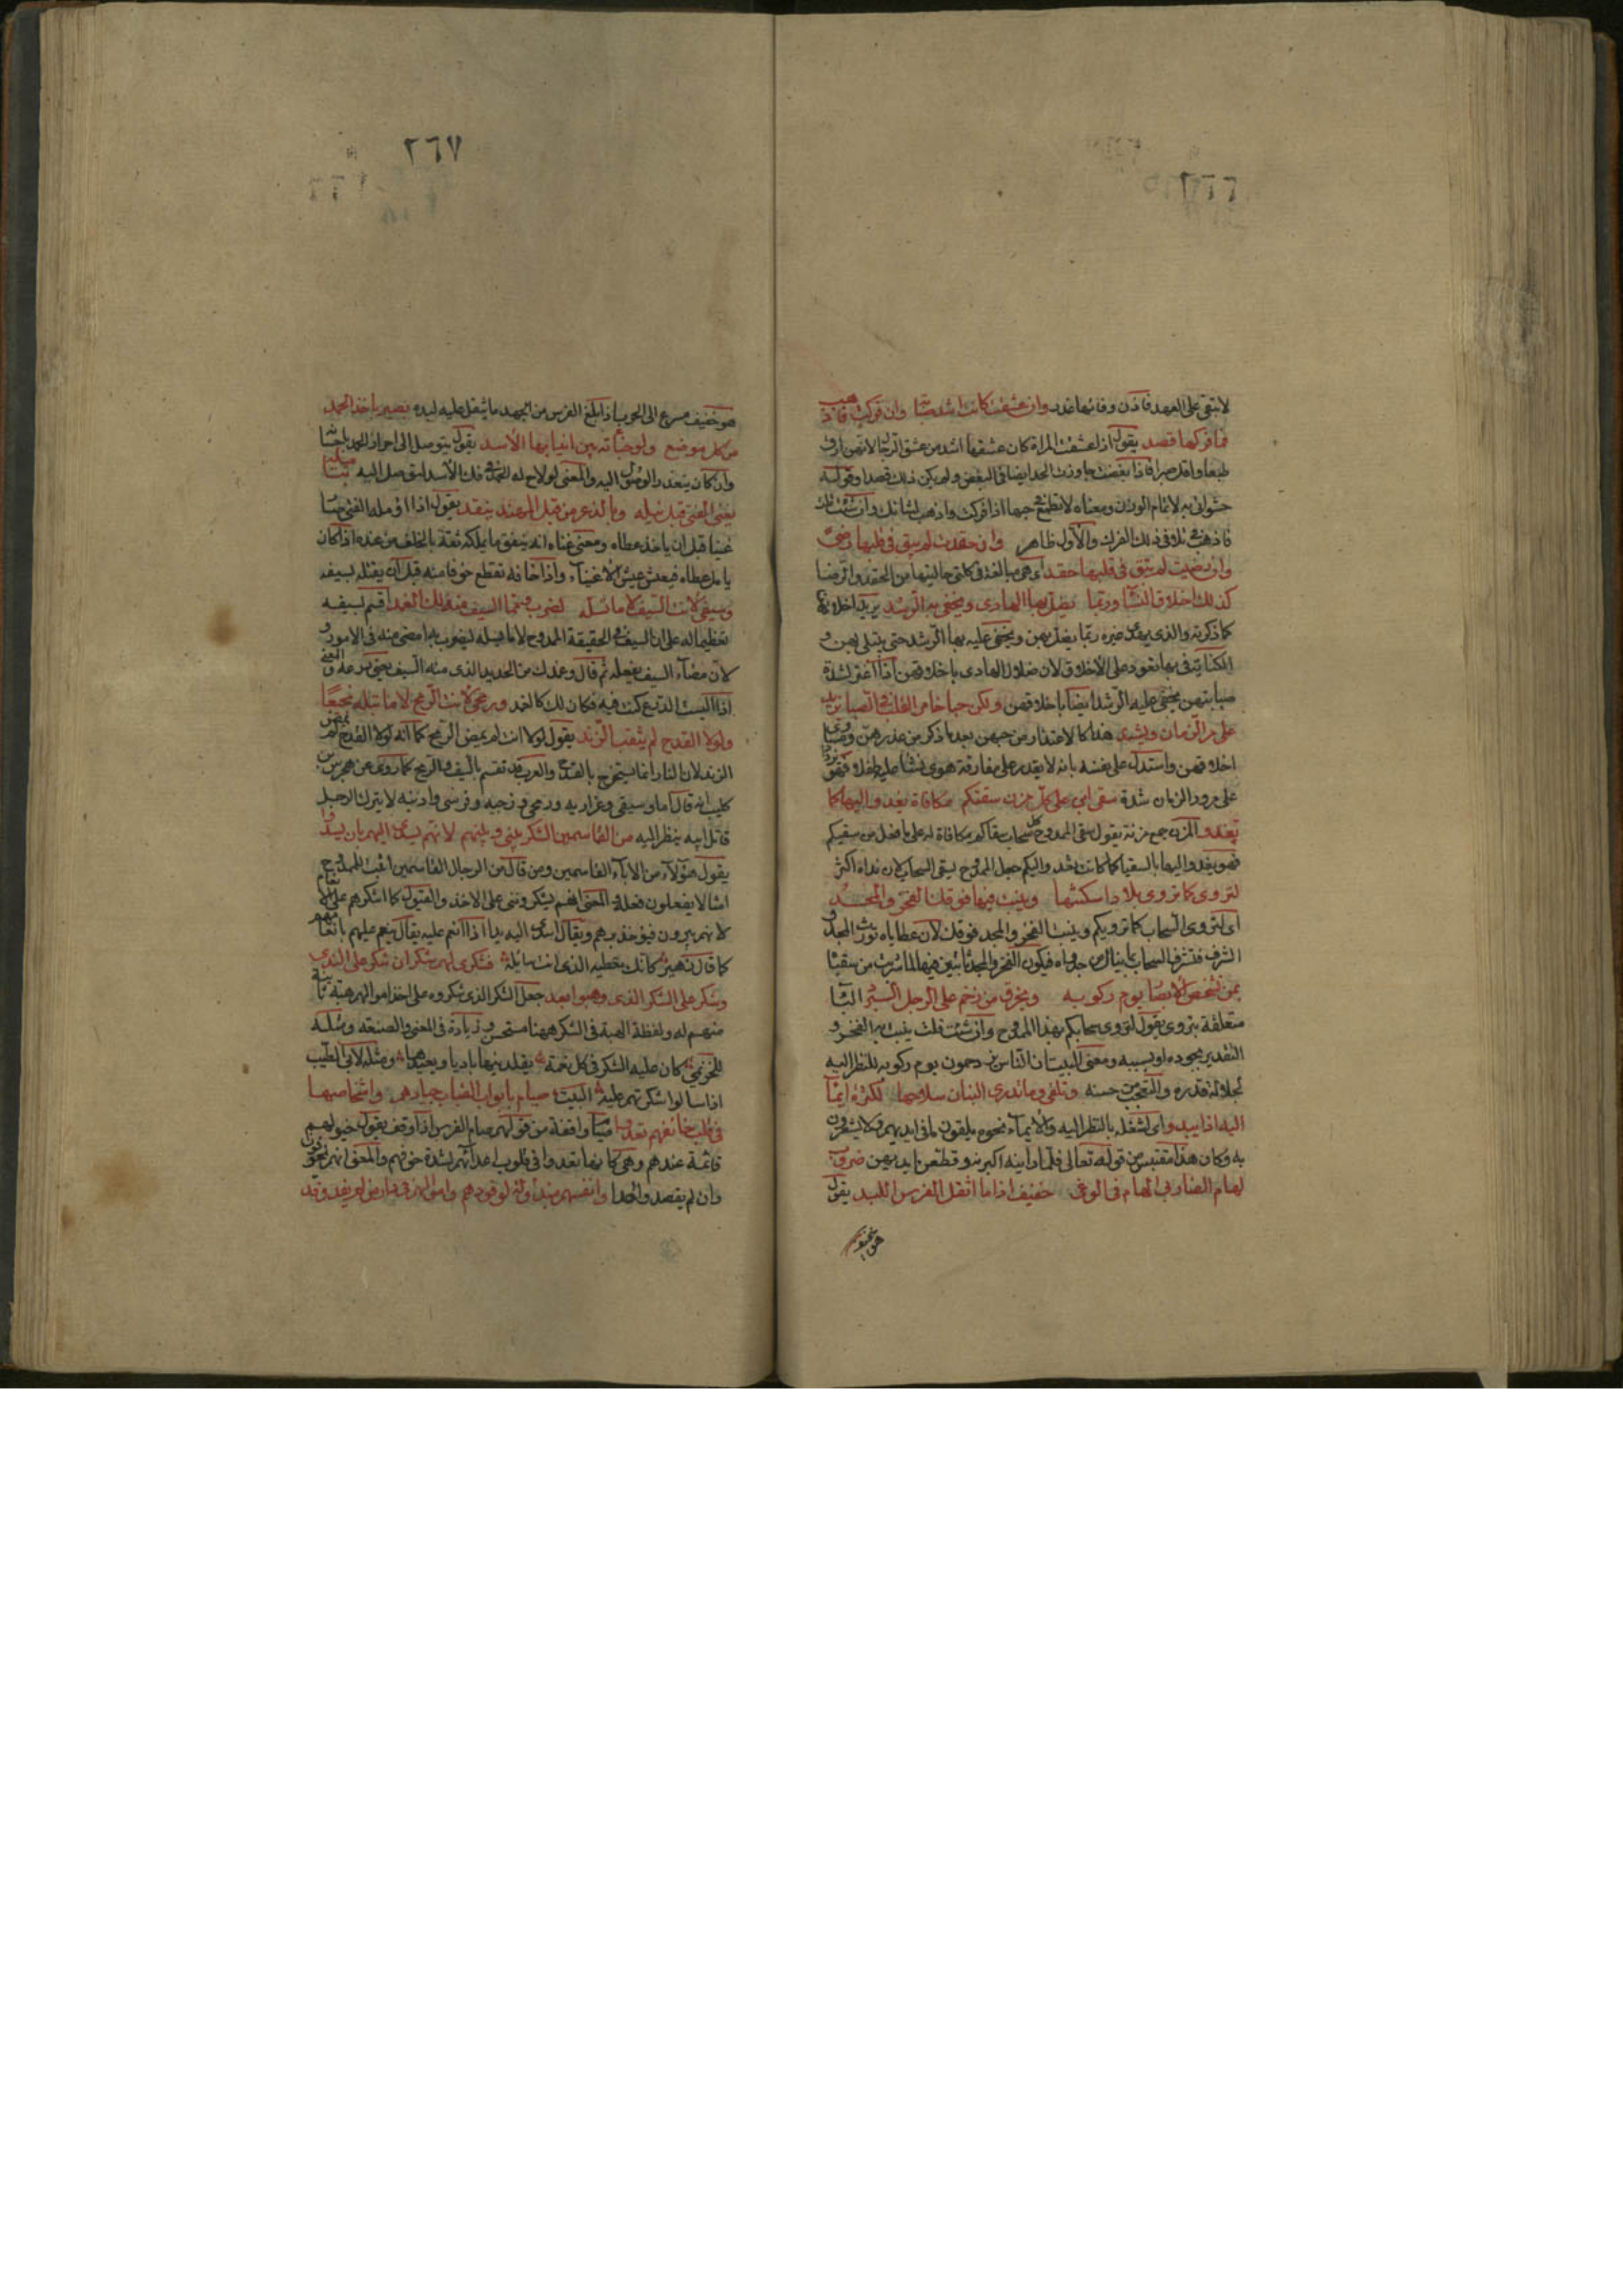 ٢٦٦
لا تبقى على العهد فاذن وفائها غدر وان عشقت كانت اشد صبابة وان فركت فاذهب
فما فركها قصد يقول اذا عشقت المراة كان عشقها اشد من عشق الرجال لانهن ارق
طبعا واقل صبرا فاذا ابغضت جاوزت الحد ايضا في البغض ولم يكن ذلك قصدا وقوله
حشو اتى به لاتمام الوزن ومعناه لا تطمع في حبها اذا فركت واذهب لشانك وان شئت قلت
فاذهب في ذلك الفرك والاول ظاهر وان حقدت لم يبق في قلبها رضى
وان رضيت لم يبق في قلبها حقد اى هى مبالغة في كلتى حالتيها من الحقد والرضا
كذلك اخلاق النساء وربما يضل بها الهادى ويخفى بها الرشد يريد اخلاقها
كما ذكرته والذى يهدى غيره ربما يضل بهن ويخفى عليه بها الرشد حتى يبتلى بهن و
الكناية في بها تعود على الاخلاق لان ضلال الهادى باخلاقهن اذا اغتر لشدة
صبابتهن يخفى عليه الرشد ايضا باخلاقهن ولكن حبا خامر القلب في الصبا يزيد
على مر الزمان ويشتد هذا كالاعتذار من حبهن بعد ما ذكر من غدرهن ومساوى
اخلاقهن واستدل على نفسه بانه لا يقدر على مفارقة هوى نشا عليه طفلا فهو يزداد
على مرور الزمان شدة سقى ابن على كل مزن سقتكم مكافاة يغدو اليها كما
تغدو المزن جمع مزنة يقول سقى الممدوح كل سحاب سقاكم مكافاة له على ما فعل من سقيكم
فهو يغدو اليها بالسقيا كما كانت تغدو اليكم جعل الممدوح يسقى السحاب لان نداه اكثر
لتروى كما تروى بلادا سكنتها وينبت فيها فوقك الفخر والمجد
اى لتروى السحاب كما ترويكم وينبت الفخر والمجد فوقك لان عطاياه تورث المجد و
الشرف فتشرف السحاب بما ينال من جدواه فيكون الفخر والمجد نابتين فيها لما شربت من سقيا
بمن تشخص الابصار يوم ركوبه ويخرق من زحم على الرجل البرد البا
متعلقة بتروى يقول لتروى سحابكم بهذا الممدوح وان شئت قلت ينبت به الفخر و
التقدير بجوده او بسببه ومعنى البيت ان الناس يزدحمون يوم ركوبه للنظر اليه
لجلالة قدره والتعجب من حسنه وتلقى وما تدرى البنان سلاحها لكثرة ايما
اليه اذا يبدو اى لشغله بالنظر اليه والايماء نحوه يلقون ما في ايديهم ولا يشعرون
به وكان هذا مقتبس من قوله تعالى فلما راينه اكبرنه وقطعن ايديهن ضروب
لهام الضاربى الهام في الوغى خفيف اذا ما اثقل الفرس اللبد يقول
هو خفيف
٢٦٧
هو خفيف مسرع الى الحرب اذا بلغ الفرس من الجهد ما يثقل عليه لبده بصير باخذ الحمد
من كل موضع ولو خبأته بين انيابها الاسد يقول يتوصل الى احراز الحمد باحسانه
وان كان يتعذر الوصول اليه والمعنى لو لاح له الحمد في فك الاسد لتوصل اليه بتاميله
يغنى الفتى قبل نيله وبالذعر من قبل المهند ينقد يقول اذا امله الفتى صار
غنيا قبل ان ياخذ عطاه ومعنى غناه انه ينفق ما يملكه ثقة بالخلف من عنده اذا كان
يامل عطاه فيعيش عيش الاغنياء واذا خافه تقطع خوفا منه قبل ان يقتله بسيفه
وسيفى لانت السيف لا ما تسله لضرب ومما السيف منه لك الغمد اقسم بسيفه
تعظيما له على ان السيف في الحقيقة الممدوح لا ما يسله ليضرب به امضى منه في الامور و
لان مضاء السيف بفعله ثم قال وغمدك من الحديد الذى منه السيف يعنى درعه والمعنى
اذا لبست الدرع كنت فيه فكان لك كالغمد ورمحى لانت الرمح لا ما تبله نجيعا
ولولا القدح لم يثقب الزند يقول لولا انت لم يمض الرمح كما انه لولا القدح لم يضئ
الزند لان النار انما تستخرج بالقدح والعرب قد تقسم بالسيف والرمح كما روى عن هجرس بن
كليب انه قال اما وسيفى وغراريه ورمحى وزجيه وفرسى واذنيه لا يترك الرجل
قاتل ابيه ينظر اليه من القاسمين الشكر بينى وبينهم لانهم يسدى اليهم بان يسدوا
يقول هؤلاء من الاباء القاسمين ومن قال من الرجال القاسمين اغبت الممدوح
لانهم يبرون فيؤخذ برهم ويقال اسدى اليه يدا اذا انعم عليه يقال ينعم عليهم بانعامهم
كما قال زهير كانك تعطيه الذى انت سائله فشكرى لهم شكران شكر على الندى
وشكر على الشكر الذى وهبوا بعد جعل الشكر الذى شكروه على اخذ اموالهم هبة ثانية
منهم له ولفظة الهبة في الشكر ههنا مستحسن وزيادة في المعنى والصنعة ومثله
للخزيمى كان عليه الشكر في كل نعمة يقلدنيها باديا ويعيدها ومثله لابى الطيب
اذا سالوا شكرتهم عليه البيت صيام بابواب القباب جيادهم واشخاصها
في قلب خائفهم تعدو قياما واقفة من قولهم صام الفرس اذا وقف يقول خيولهم
قائمة عندهم وهى كانها تعدوا في قلوب اعدائهم لشدة خوفهم والمعنى انهم يخافون
وان لم يقصدوا احدا وانفسهم مبذولة لوفودهم واموالهم في دار من لم يفد وفد